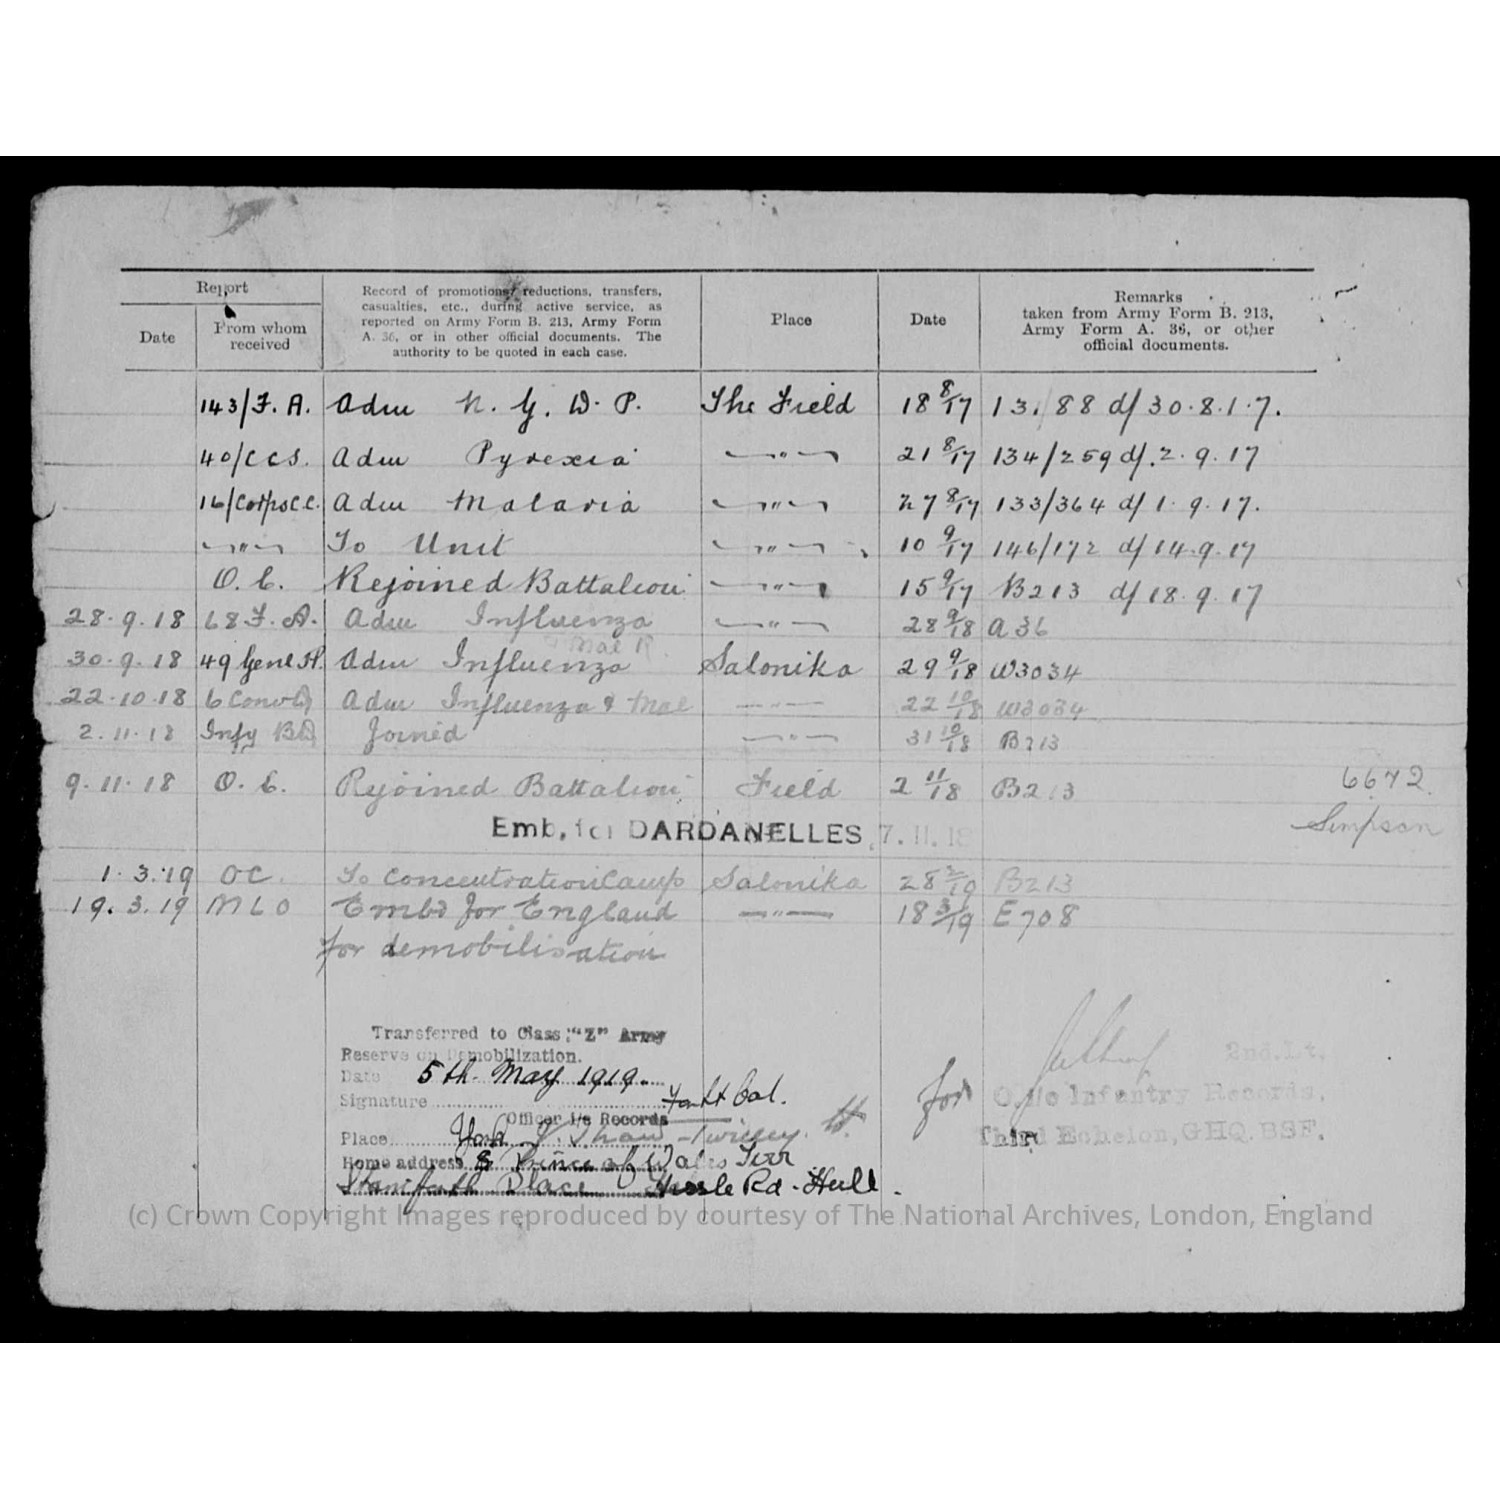 Report
Date
From whom received
Record of promotions, reductions, transfers,
casualties, etc., during active service, as
reported on Army Form B. 213, Army Form
A. 36, or in other official documents. The
authority to be quoted in each case.
Place
Date
Remarks
taken from Army Form B. 213,
Army Form A. 36, or other
official documents.
143/F.A. Adm N. Y. D. P. The Field 18 8/17 13/88 d/30.8.17.
40/CCS. Adm Pyrexia —"— 21 8/17 134/259 d/.2.9.17
16/Corps C.C. Adm Malaria —"— 27 8/17 133/364 d/1.9.17.
—"— To Unit —"— 10 9/17 146/172 d/14.9.17
O.C. Rejoined Battalion —"— 15 9/17 B213 d/18.9.17
28.9.18 68 F.A. Adm Influenza —"— 28 9/18 A36
Mal R.
30.9.18 49 Genl H. Adm Influenza Salonika 29 9/18 W3034
22.10.18 6 Conv D Adm Influenza & Mal —"— 22 10/18 W3034
2.11.18 Infy BD Joined —"— 31 10/18 B213
9.11.18 O.C. Rejoined Battalion Field 2 11/18 B213
6672
Simpson
Emb. for DARDANELLES 7.11.18
1.3.19 OC. To Concentration Camp Salonika 28 2/19 B213
19.3.19 MLO Embd for England —"— 18 3/19 E708
for demobilisation
Transferred to Class "Z" Army
Reserve on Demobilization.
Date 5th May 1919.
Signature
Officer i/c Records
Place York
Home address 8 Prince of Wales Terr
Staniforth Place Hessle Rd. Hull.
2nd.Lt.
for O. i/c Infantry Records,
Third Echelon, GHQ. BSF.
(c) Crown Copyright Images reproduced by courtesy of The National Archives, London, England